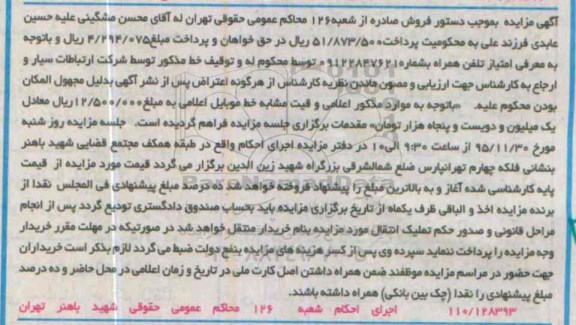 آگهی مزایده بموجب دستور فروش صادره از شعبه۱۲۶ محاکم عمومی حقوقی تهران له آقای محسن مشگینی علیه حسین
عابدی فرزند علی به محکومیت پرداخت۵۱/۸۷۳/۵۰۰ ریال در حق خواهان و پرداخت مبلغ۴/۲۹۴/۰۷۵ ریال و باتوجه
به معرفی امتیاز تلفن همراه بشماره۰۹۱۲۲۸۴۷۶۲۱۰ توسط محکوم له و توقیف خط مذکور توسط شرکت ارتباطات سیار و
ارجاع به کارشناس جهت ارزیابی و مصون ماندن نظریه کارشناس از هرگونه اعتراض پس از نشر آگهی بدلیل مجهول المکان
بودن محکوم علیه. «باتوجه به موارد مذکور اعلامی و قیت مشابه خط موبایل اعلامی به مبلغ۱۲/۵۰۰/۰۰۰ریال معادل
یک میلیون و دویست و پنجاه هزار تومان» مقدمات برگزاری جلسه مزایده فراهم گردیده است. جلسه مزایده روز شنبه
مورخ ۹۵/۱۱/۳۰ از ساعت ۹:۳۰ الی۱۰ در دفتر مزایده اجرای احکام واقع در طبقه همکف مجتمع قضایی شهید باهنر
بنشانی فلکه چهارم تهرانپارس ضلع شمالشرقی بزرگراه شهید زین الدین برگزار می گردد قیمت مورد مزایده از قیمت
پایه کارشناسی شده آغاز و به بالاترین مبلغ را پیشنهاد فروخته خواهد شد ده درصد مبلغ پیشنهادی فی المجلس نقدا از
برنده مزایده اخذ و الباقی ظرف یکماه از تاریخ برگزاری مزایده باید بحساب صندوق دادگستری تودیع گردد پس از انجام
مراحل قانونی و صدور حکم تملیک انتقال مورد مزایده بنام خریدار منتقل خواهد شد در صورتیکه در مهلت مقرر خریدار
وجه مزایده را پرداخت ننماید سپرده وی پس از کسر هزینه های مزایده بنفع دولت ضبط می گردد لازم بذکر است خریداران
جهت حضور در مراسم مزایده موظفند ضمن همراه داشتن اصل کارت ملی در تاریخ و زمان اعلامی در محل حاضر و ده درصد
مبلغ پیشنهادی را نقدا (چک بین بانکی) همراه داشته باشند.
۱۱۰/۱۲۸۳۹۳ اجرای احکام شعبه ۱۲۶ محاکم عمومی حقوقی شهید باهنر تهران